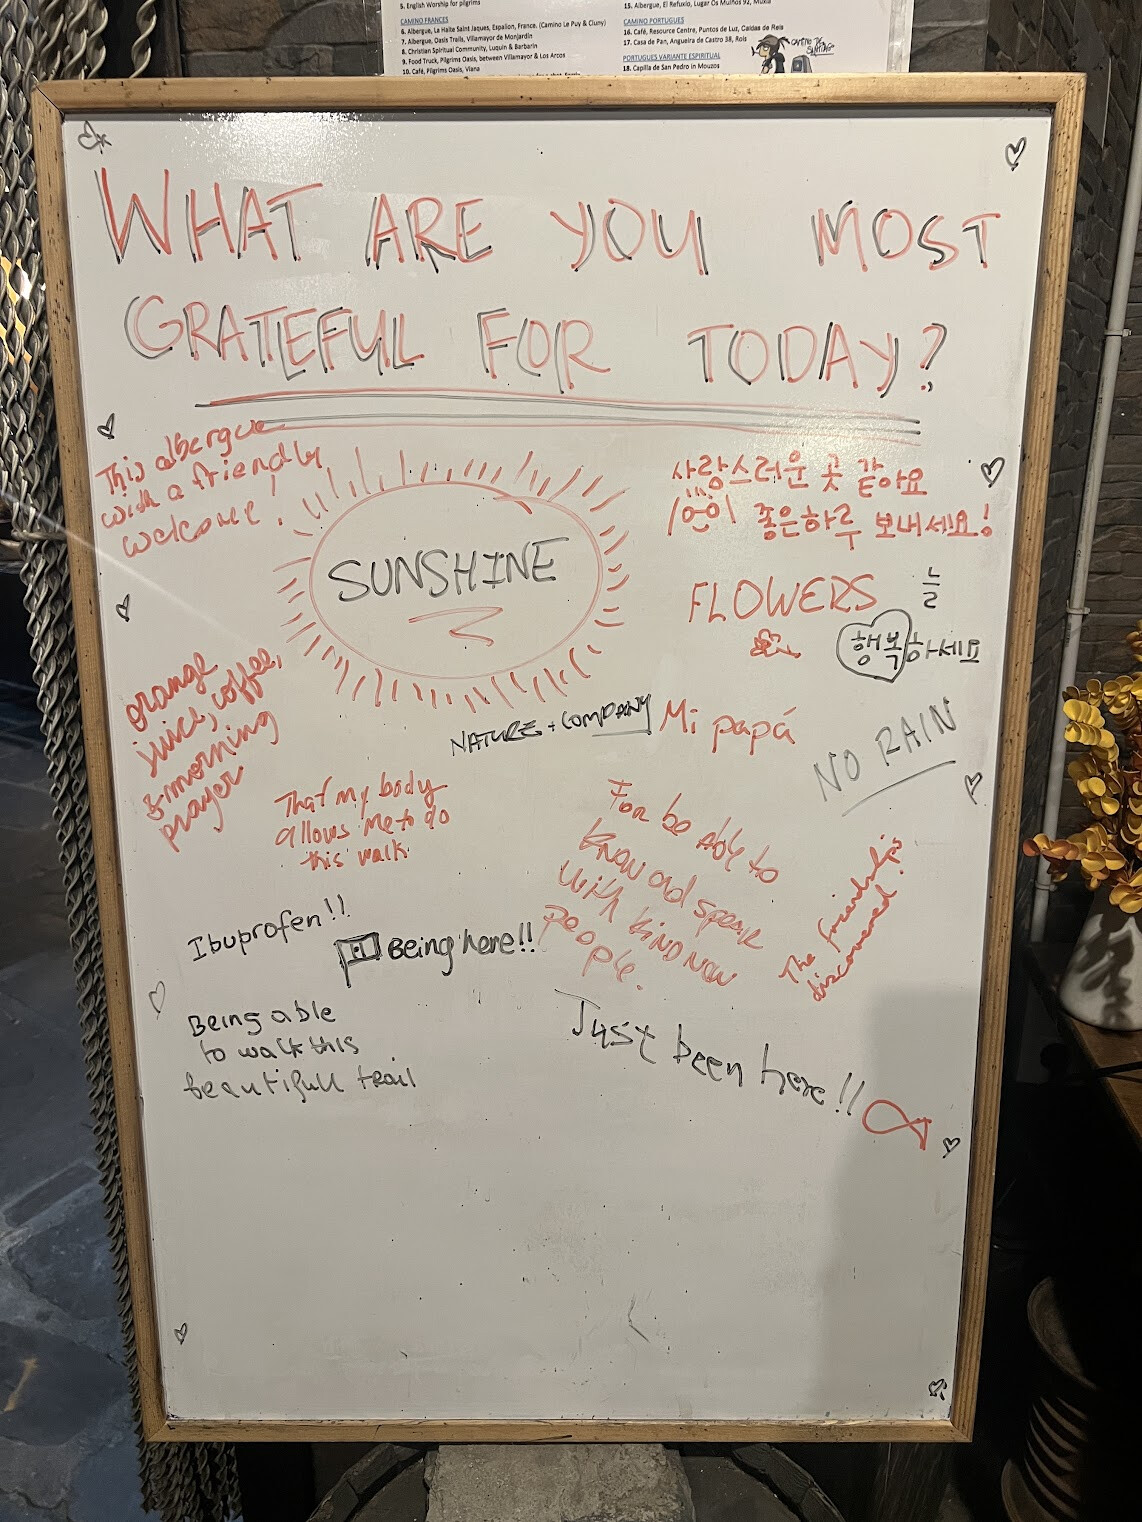 5. English Worship for pilgrims
CAMINO FRANCES
6. Albergue, La Halte Saint Jaques, Espalion, France. (Camino Le Puy & Cluny)
7. Albergue, Oasis Trails, Villamayor de Monjardin
8. Christian Spiritual Community, Luquin & Barbarin
9. Food Truck, Pilgrims Oasis, between Villamayor & Los Arcos
10. Café, Pilgrims Oasis, Viana
15. Albergue, El Refuxio, Lugar Os Muiños 92, Muxia
CAMINO PORTUGUES
16. Café, Resource Centre, Puntos de Luz, Caldas de Reis
17. Casa de Pan, Angueira de Castro 38, Rois
PORTUGUES VARIANTE ESPIRITUAL
18. Capilla de San Pedro in Mouzos
WHAT ARE YOU MOST
GRATEFUL FOR TODAY?
This albergue
with a friendly
welcome!
SUNSHINE
사랑스러운 곳 같아요
좋은하루 보내세요!
FLOWERS
늘
행복하세요
orange
juice, coffee,
& morning
prayer
NATURE + COMPANY
Mi papá
NO RAIN
That my body
allows me to do
this walk
For be able to
know and speak
with kind new
people.
The friendships
discovered!
Ibuprofen!!
Being here!!
Being able
to walk this
beautifull trail
Just been here!!